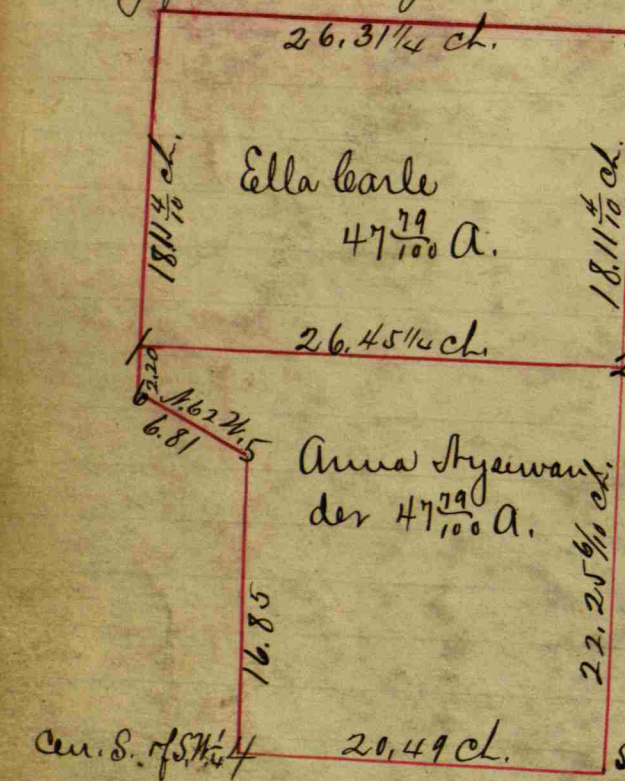 26.31¼ ch.
18.11 4/10 ch.
Ella Carle
47 79/100 A.
18.11 4/10 ch.
26.45¼ ch.
7
2.20
6
N.62 W.
6.81
5
Anna
der 47 79/100 A.
22.25 6/10 ch.
16.85
Cen. S. of S.W ¼ 4
20,49 ch.